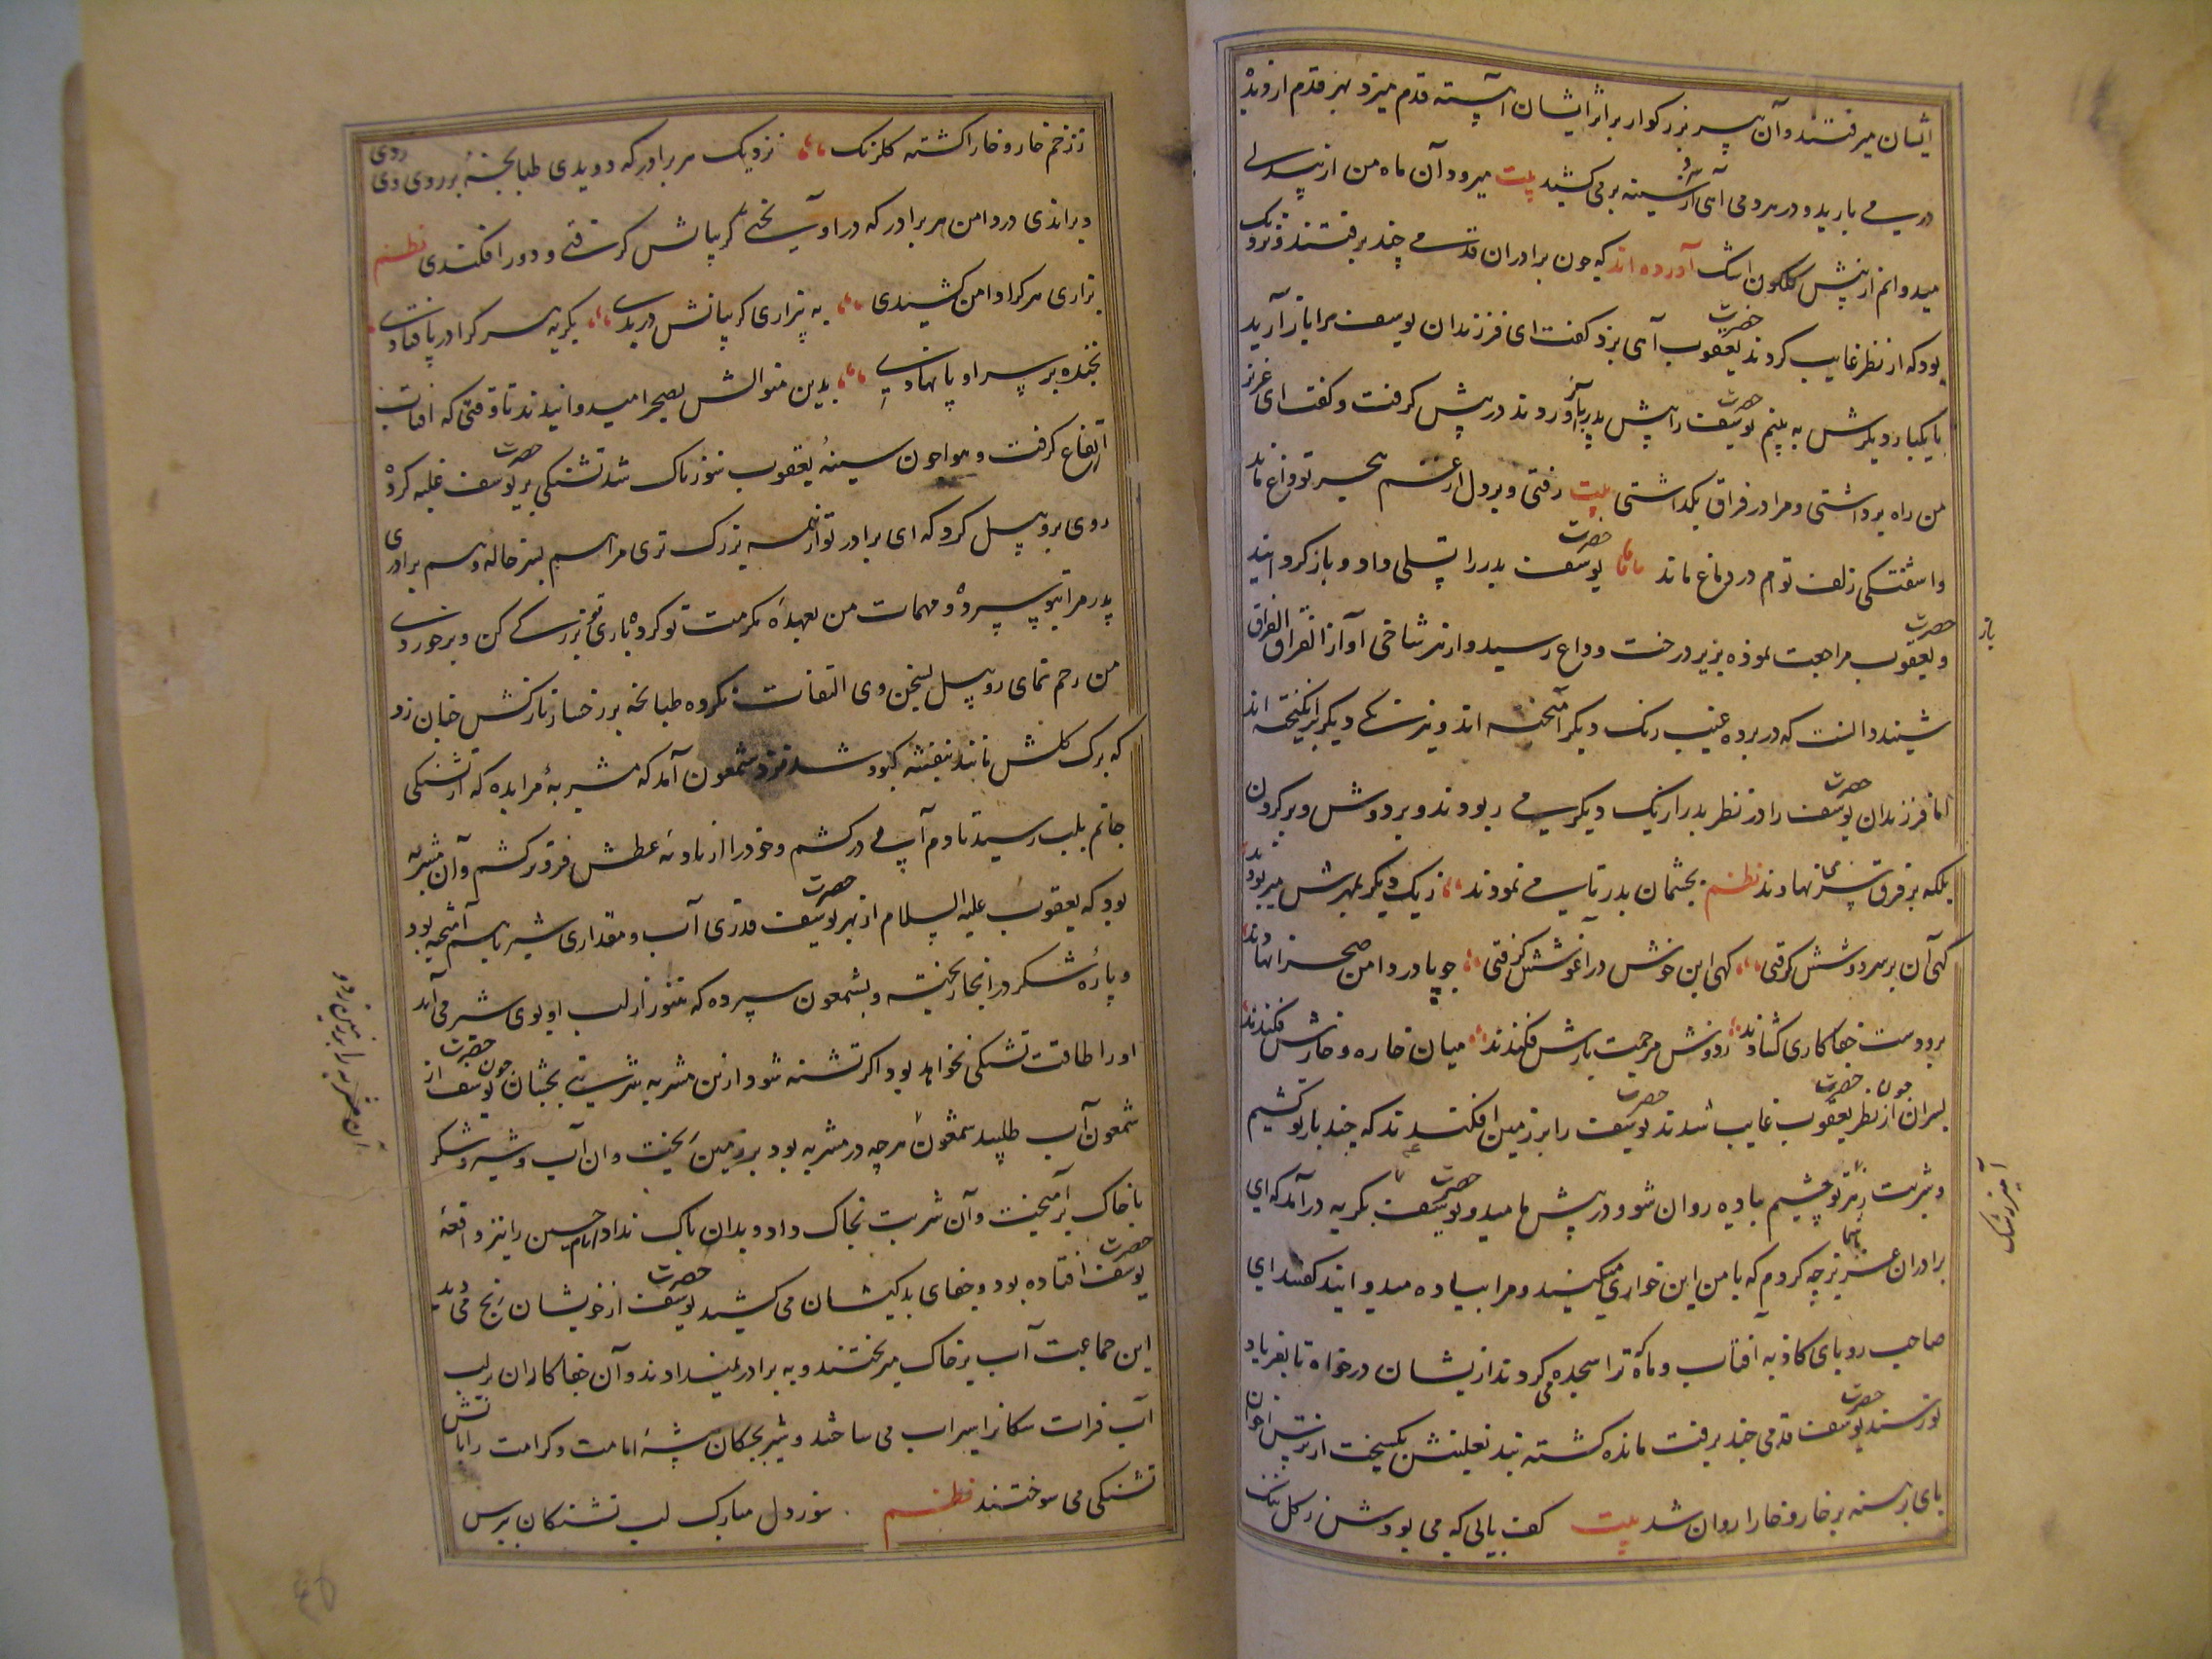 ایشان میرفتند و آن پیر بزرکوار بر اثر ایشان آهسته قدم میزد بهر قدم از دیده
در می بارید و در هر دمی آهی از سینه بر می کشید بیت میرود آن ماه من از پی
میدوانم از پیش کلکون اشک آورده اند که چون برادران قدمی چند برفتند و نزدیک
بود که از نظر غایب کردند حضرت یعقوب آهی بزد کفت ای فرزندان یوسف مرا باز آرید
تا یکبار دیکرش به بینم حضرت یوسف را پیش پدر باز آوردند در پیش کرفت و کفت ای عزیز
من راه برداشتی و مرا در فراق بکداشتی بیت رفتی و بر دل از غم هجر تو داغ ماند
واشفتکی زلف توام در دماغ ماند حضرت یوسف پدر را تسلی داد و باز کردانید
و حضرت یعقوب مراجعت نموده بزیر درخت وداع رسید و از هر شاخی آواز الفراق الفراق
شنید دانست که در پرده غیب رنک دیکر آمیخته اند و نیرنکی دیکر برانکیخته اند
اما فرزندان حضرت یوسف را در نظر پدر از یک دیکر می ربودند و بر دوش و بر کردن
بلکه بر فرق سر می نهادند نظم بچشمان پدر تا می نمودند ز یک دیکر بمهرش میربودند
کهی آن بر سر دوشش کرفتی کهی این خوش در آغوشش کرفتی چو پا در دامن صحرا نهادند
برو دست جفاکاری کشادند ز دوش مرحمت بارش فکندند میان خاره و خارش فکندند
چون پسران از نظر حضرت یعقوب غایب شدند حضرت یوسف را بر زمین افکندند که چند بار تو کشیم
و شربت زهر تو چشیم پیاده روان شو و در پیش ما میدو حضرت یوسف بکریه در آمد که ای
برادران عزیز چه کردم که با من این خواری میکنید و مرا پیاده میدوانید کفتند ای
صاحب رویای کاذبه آفتاب و ماه ترا سجده می کردند از ایشان در خواه تا بفریاد
تو رسند حضرت یوسف قدمی چند برفت مانده کشته بند نعلینش بکسیخت از ترس اخوان
پای برهنه بر خار و خارا روان شد بیت کف پایی که می بودش ز کل ننک
باز
ز زخم خار و خارا کشته کلرنک نزدیک هر برادر که دویدی طبانچه بر روی وی
و براندی در دامن هر برادر که در آویختی کریبانش کرفتی و دور افکندی نظم
بزاری هر کرا دامن کشیدی به بیزاری کریبانش دریدی بکریه هر کرا در پا فتادی
بخنده بر سر او پا نهادی بدین منوالش بصحرا میدوانیدند تا وقتی که افتاب
ارتفاع کرفت و هوا چون سینۀ یعقوب سوزناک شد تشنکی بر حضرت یوسف غلبه کرد
روی بروبیل کرد که ای برادر تو از همه بزرک تری مرا هم پسر خاله و هم برادری
پدر مرا بتو سپرده و مهمات من بعهدۀ مکرمت تو کرده باری تو بزرکی کن و بر خوردی
من رحم نمای روبیل بسخن وی التفات نکرده طبانچه بر رخسار نازکش چنان زد
که برک کلش مانند بنفشه کبود شد نزد شمعون آمد که مشربۀ مرا بده که از تشنکی
جانم بلب رسید تا دم آبی در کشم و خود را از بادیۀ عطش فروتر کشم و آن مشربه
بود که یعقوب علیه السلام از بهر حضرت یوسف قدری آب و مقداری شیر باهم آمیخته بود
و پارۀ شکر در انجا ریخته و بشمعون سپرده که هنوز از لب او بوی شیر می آید
او را طاقت تشنکی نخواهد بود اکر تشنه شود ازین مشربه شربتی بچشان چون حضرت یوسف از
شمعون آب طلبید شمعون هر چه در مشربه بود بر زمین ریخت و ان آب و شیر و شکر
با خاک بر آمیخت و آن شربت بخاک داد و بدان پاک نداد امام حسین را نیز واقعۀ
حضرت یوسف افتاده بود و جفای بد کیشان می کشید حضرت یوسف از خویشان رنج می دید
این جماعت آب بر خاک میریختند و به برادر نمیدادند و آن جفا کاران بر لب
آب فرات سکانرا سیراب می ساختند و شیر بچکان بیشۀ امامت و کرامت را باتش
تشنکی می سوختند نظم سوز دل مبارک لب تشنکان بپرس